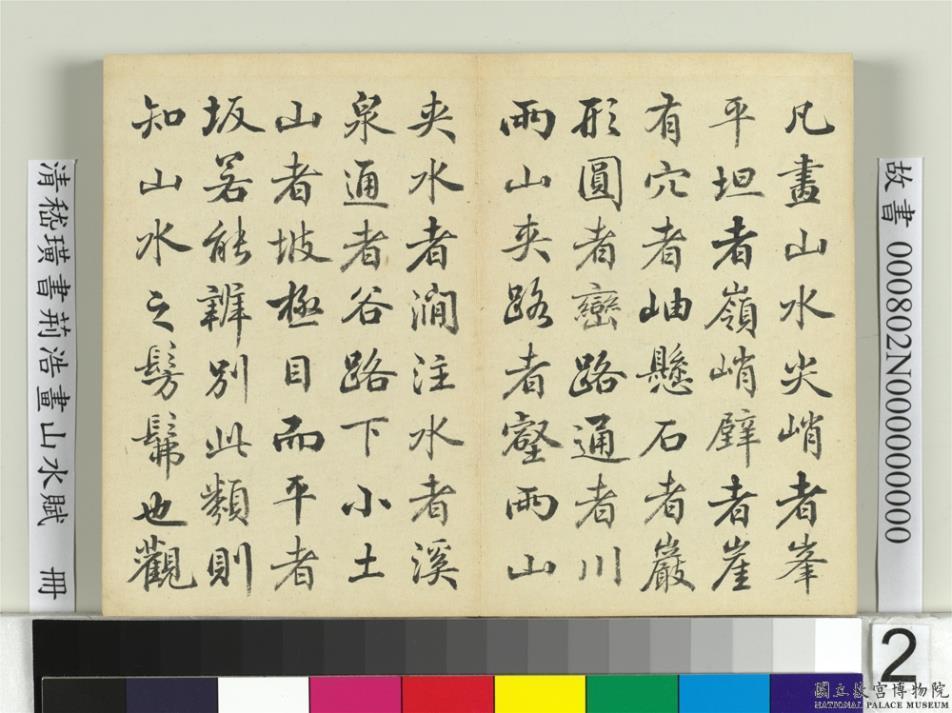 凡畫山水尖峭者峯
平坦者嶺峭壁者崖
有穴者岫懸石者巖
形圓者巒路通者川
兩山夾路者壑兩山
夾水者澗注水者溪
泉通者谷路下小土
山者坡極目而平者
坂若能辨別此類則
知山水之髣髴也觀
故書 000802N000000000
清嵇璜書荊浩畫山水賦 冊
2
國立故宮博物院
NATIONAL PALACE MUSEUM